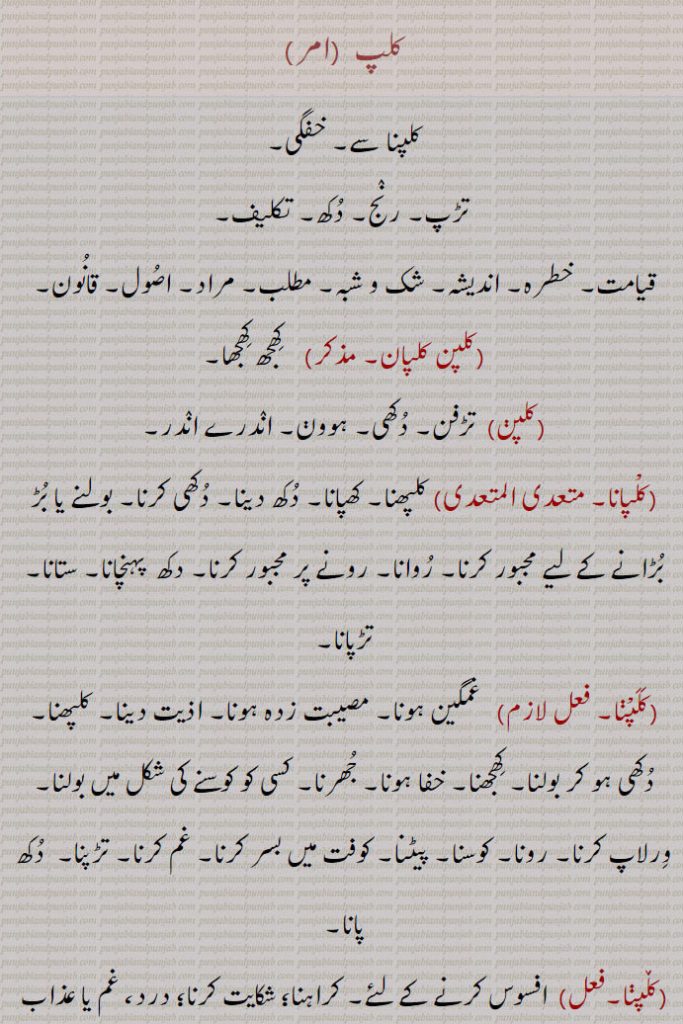 کلپ (امر)
کلپنا سے۔ خفگی۔
تڑپ۔ رنج۔ دُکھ۔ تکلیف۔
قیامت۔ خطرہ۔ اندیشہ۔ شک و شبہ۔ مطلب۔ مراد۔ اصُول۔ قانُون۔
(کلپن کلپان۔ مذکر) کِھجھ کِھجھا۔
(کلپݨ) تڑفن۔ دُکھی۔ ہوون۔ انْدرے انْدر۔
(کلْپانا۔ متعدی المتعدی) کلپھنا۔ کھپانا۔ دُکھ دینا۔ دُکھی کرنا۔ بولنے یا بُڑ
بُڑانے کے لیے مجبور کرنا۔ رُوانا۔ رونے پر مجبور کرنا۔ دکھ پہنچانا۔ ستانا۔
تڑپانا۔
(کَلَپْݨا۔ فعل لازم) غمگین ہونا۔ مصیبت زدہ ہونا۔ اذیت دینا۔ کلپھنا۔
دُکھی ہو کر بولنا۔ کِھجھنا۔ خفا ہونا۔ جُھرنا۔ کسی کو کوسنے کی شکل میں بولنا۔
وِرلاپ کرنا۔ رونا۔ کوسنا۔ پیٹنا۔ کوفت میں بسر کرنا۔ غم کرنا۔ تڑپنا۔ دُکھ
پانا۔
(کلپݨا۔فعل) افسوس کرنے کے لئے۔ کراہنا؛ شکایت کرنا؛ درد، غم یا عذاب